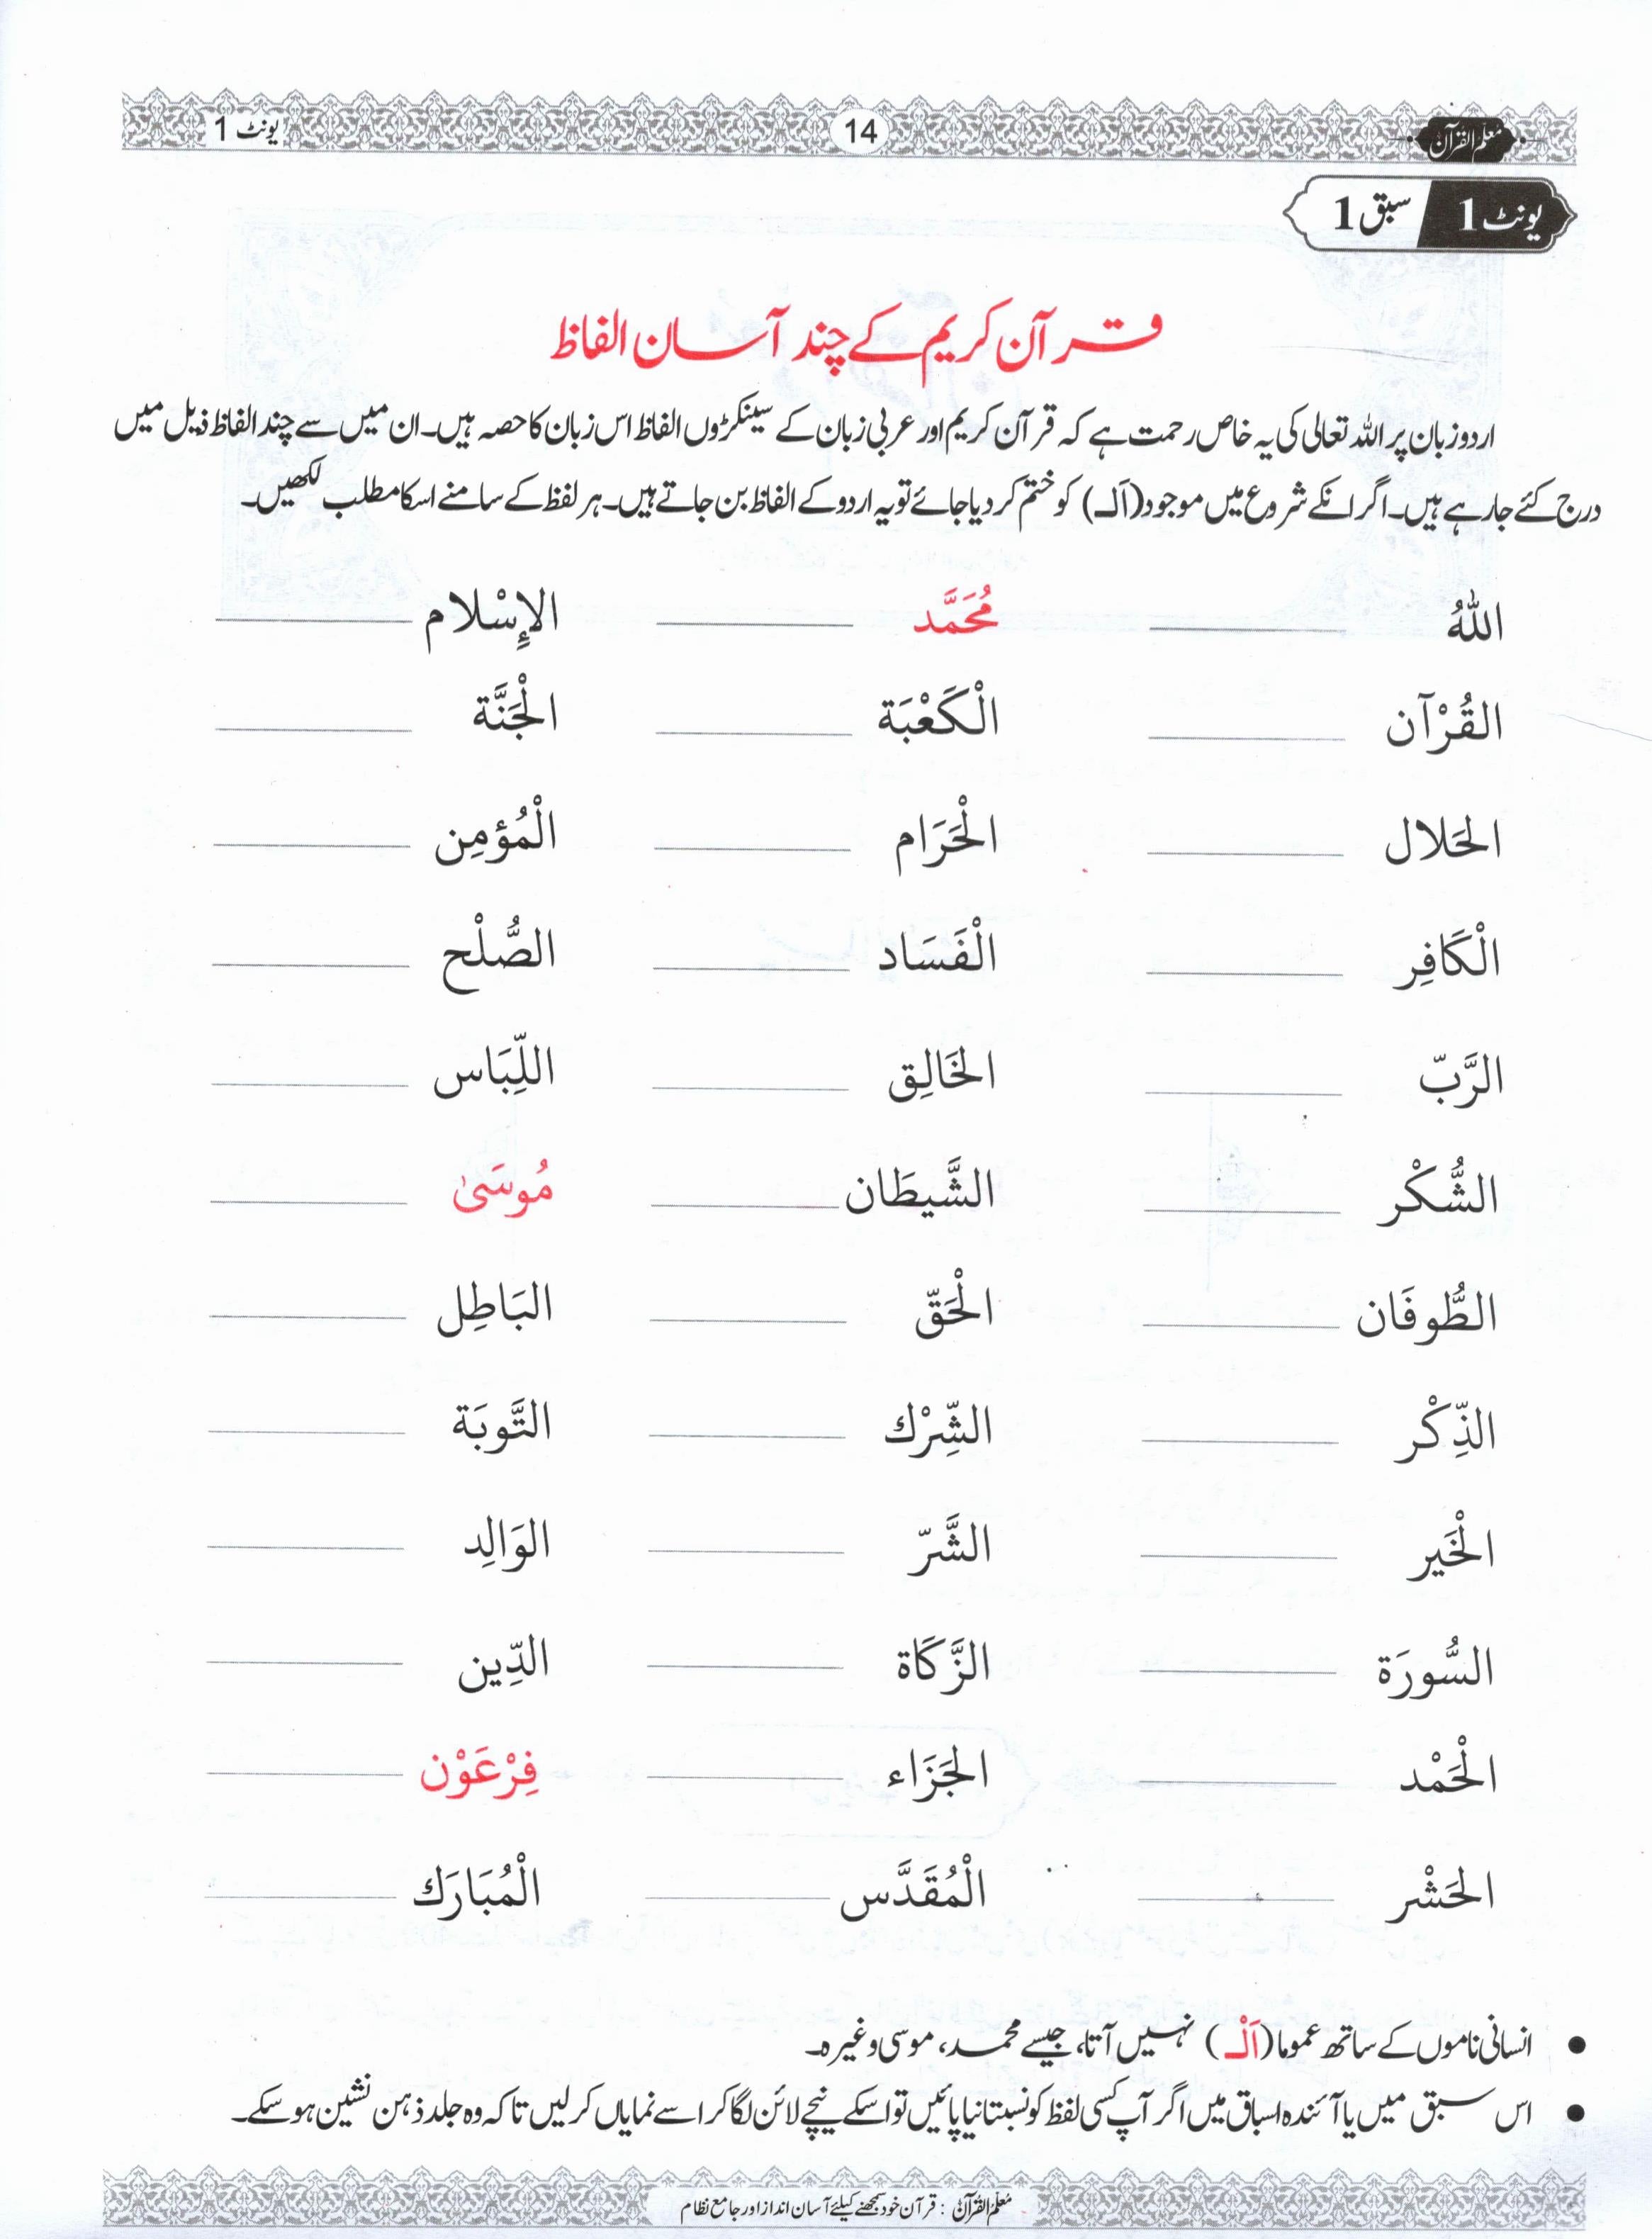 معلم القرآن 14 یونٹ 1
یونٹ 1 سبق 1
قرآن کریم کے چند آسان الفاظ
اردو زبان پر اللہ تعالی کی یہ خاص رحمت ہے کہ قرآن کریم اور عربی زبان کے سینکڑوں الفاظ اس زبان کا حصہ ہیں۔ ان میں سے چند الفاظ ذیل میں
درج کئے جا رہے ہیں۔ اگر انکے شروع میں موجود (اَلـ) کو ختم کر دیا جائے تو یہ اردو کے الفاظ بن جاتے ہیں۔ ہر لفظ کے سامنے اسکا مطلب لکھیں۔
اللّٰهُ مُحَمَّد الإِسْلام
القُرْآن الْكَعْبَة الْجَنَّة
الحَلال الْحَرَام الْمُؤمِن
الْكَافِر الْفَسَاد الصُّلْح
الرَّبّ الخَالِق اللِّبَاس
الشُّكْر الشَّيطَان مُوسَىٰ
الطُّوفَان الْحَقّ البَاطِل
الذِّكْر الشِّرْك التَّوبَة
الْخَير الشَّرّ الوَالِد
السُّورَة الزَّكَاة الدِّين
الْحَمْد الجَزَاء فِرْعَوْن
الحَشْر الْمُقَدَّس الْمُبَارَك
• انسانی ناموں کے ساتھ عموما (اَلْـ) نہیں آتا، جیسے محمد، موسی وغیرہ۔
• اس سبق میں یا آئندہ اسباق میں اگر آپ کسی لفظ کو نسبتا نیا پائیں تو اسکے نیچے لائن لگا کر اسے نمایاں کر لیں تاکہ وہ جلد ذہن نشین ہو سکے۔
معلم القرآن : قرآن خود سمجھنے کیلئے آسان انداز اور جامع نظام